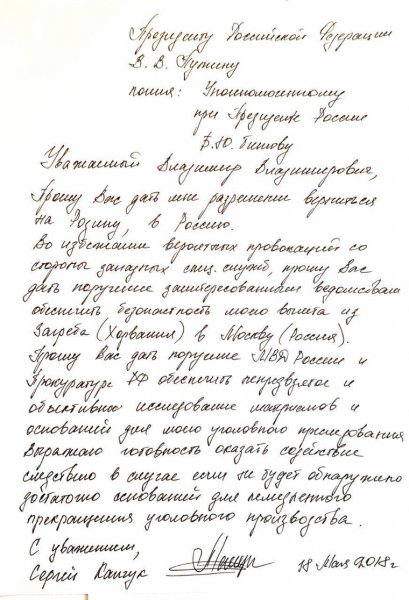 Президенту Российской Федерации
В. В. Путину
копия: Уполномоченному
при Президенте России
Б.Ю. Титову
Уважаемый Владимир Владимирович,
Прошу Вас дать мне разрешение вернуться
на Родину, в Россию.
Во избежании вероятных провокаций со
стороны западных спец. служб, прошу Вас
дать поручение заинтересованным ведомствам
обеспечить безопасность моего вылета из
Загреба (Хорватия) в Москву (Россия).
Прошу Вас дать поручение МВД России и
Прокуратуре РФ обеспечить непредвзятое и
объективное исследование материалов и
оснований для моего уголовного преследования.
Выражаю готовность оказать содействие
следствию в случае если не будет обнаружено
достаточно оснований для немедленного
прекращения уголовного производства.
С уважением,
Сергей Капчук 18 Мая 2018г